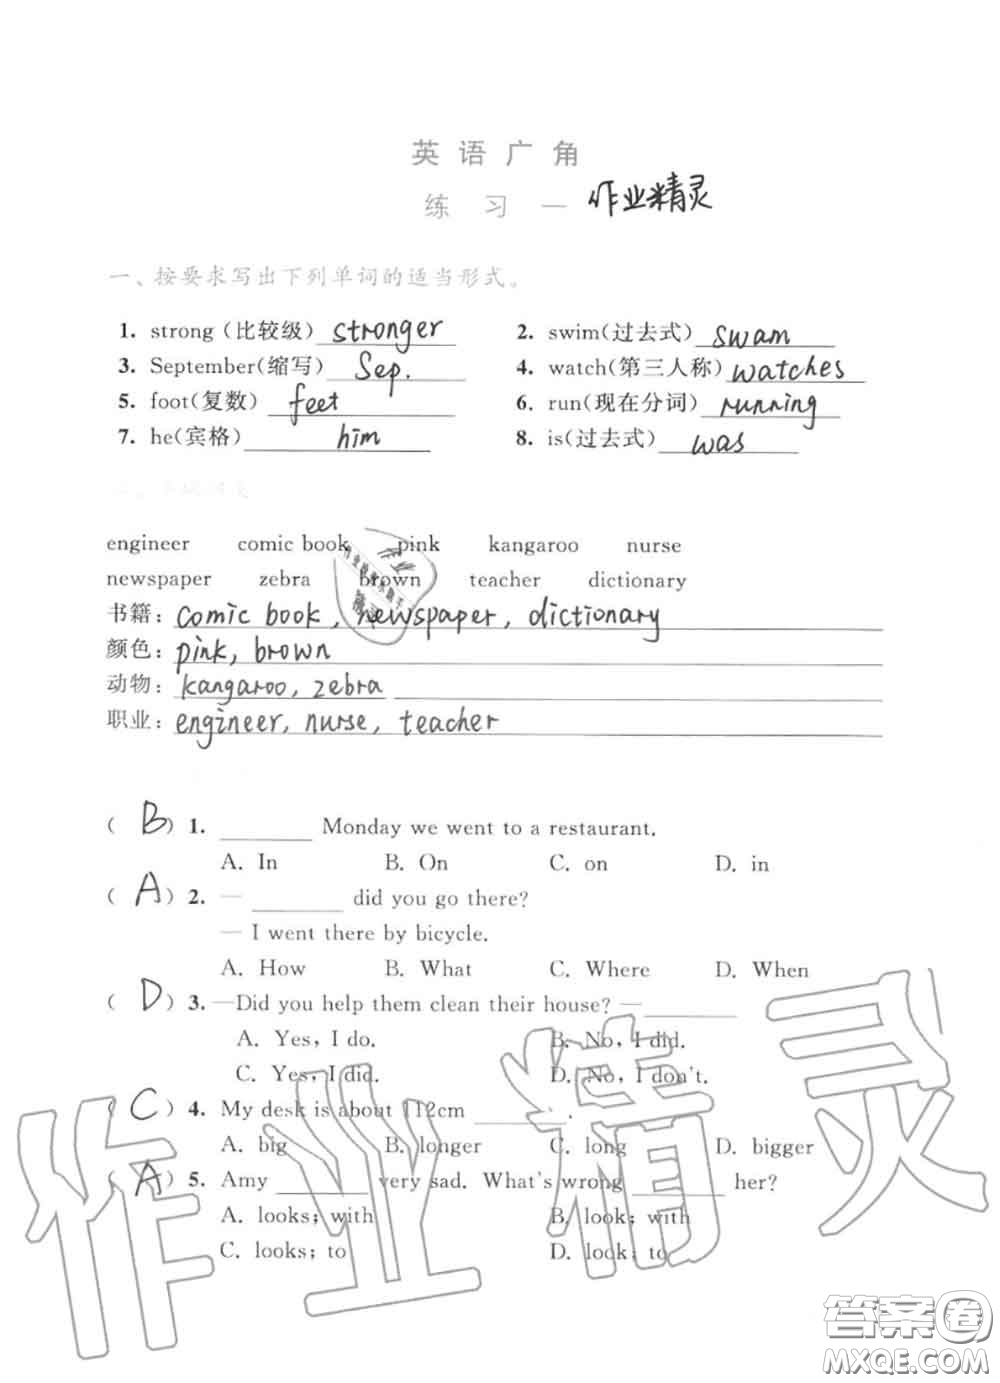 英语广角
练习一 作业精灵
一、按要求写出下列单词的适当形式。
1. strong(比较级) stronger 2. swim(过去式) swam
3. September(缩写) Sep. 4. watch(第三人称) watches
5. foot(复数) feet 6. run(现在分词) running
7. he(宾格) him 8. is(过去式) was
engineer comic book pink kangaroo nurse
newspaper zebra brown teacher dictionary
书籍: comic book, newspaper, dictionary
颜色: pink, brown
动物: kangaroo, zebra
职业: engineer, nurse, teacher
( B ) 1. ______ Monday we went to a restaurant.
A. In B. On C. on D. in
( A ) 2. — ______ did you go there?
— I went there by bicycle.
A. How B. What C. Where D. When
( D ) 3. —Did you help them clean their house? — ______
A. Yes, I do. B. No, I did.
C. Yes, I did. D. No, I don't.
( C ) 4. My desk is about 112cm ______.
A. big B. longer C. long D. bigger
( A ) 5. Amy ______ very sad. What's wrong ______ her?
A. looks; with B. look; with
C. looks; to D. look; to
作业精灵
答案圈
MXQE.COM